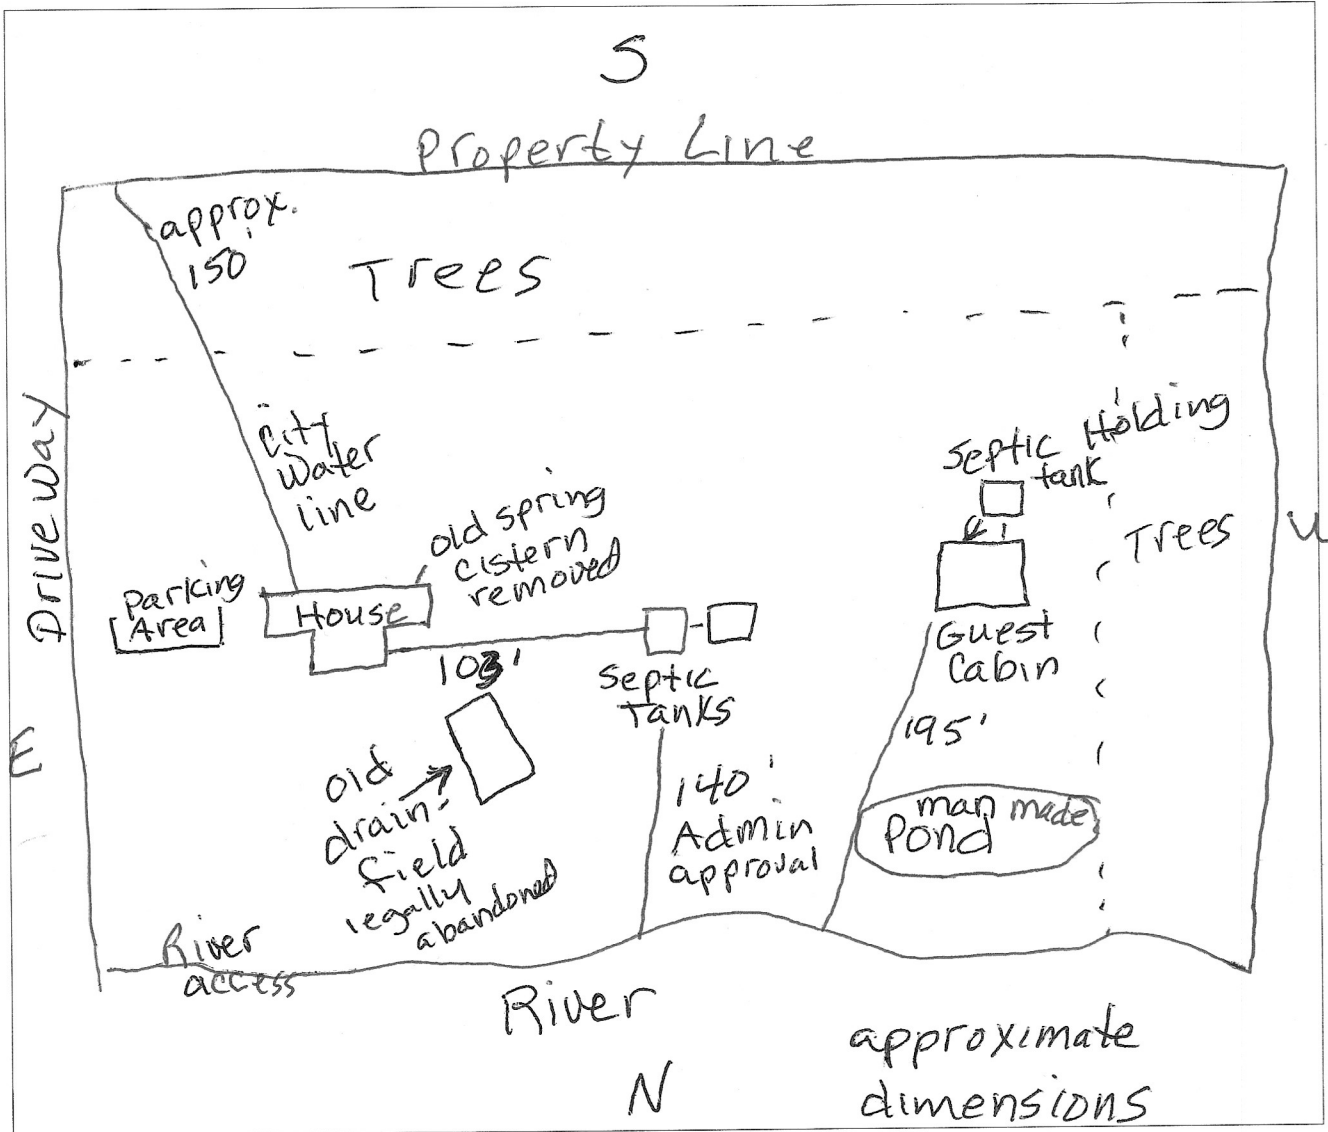 S
Property Line
approx.
150'
Trees
Driveway
City
Water
line
old spring
cistern
removed
Septic Holding
tank
Trees
Parking
Area
House
103'
Septic
Tanks
Guest
Cabin
195'
E
old
drain-
field
legally
abandoned
140'
Admin
approval
man made
Pond
River
access
River
N
approximate
dimensions